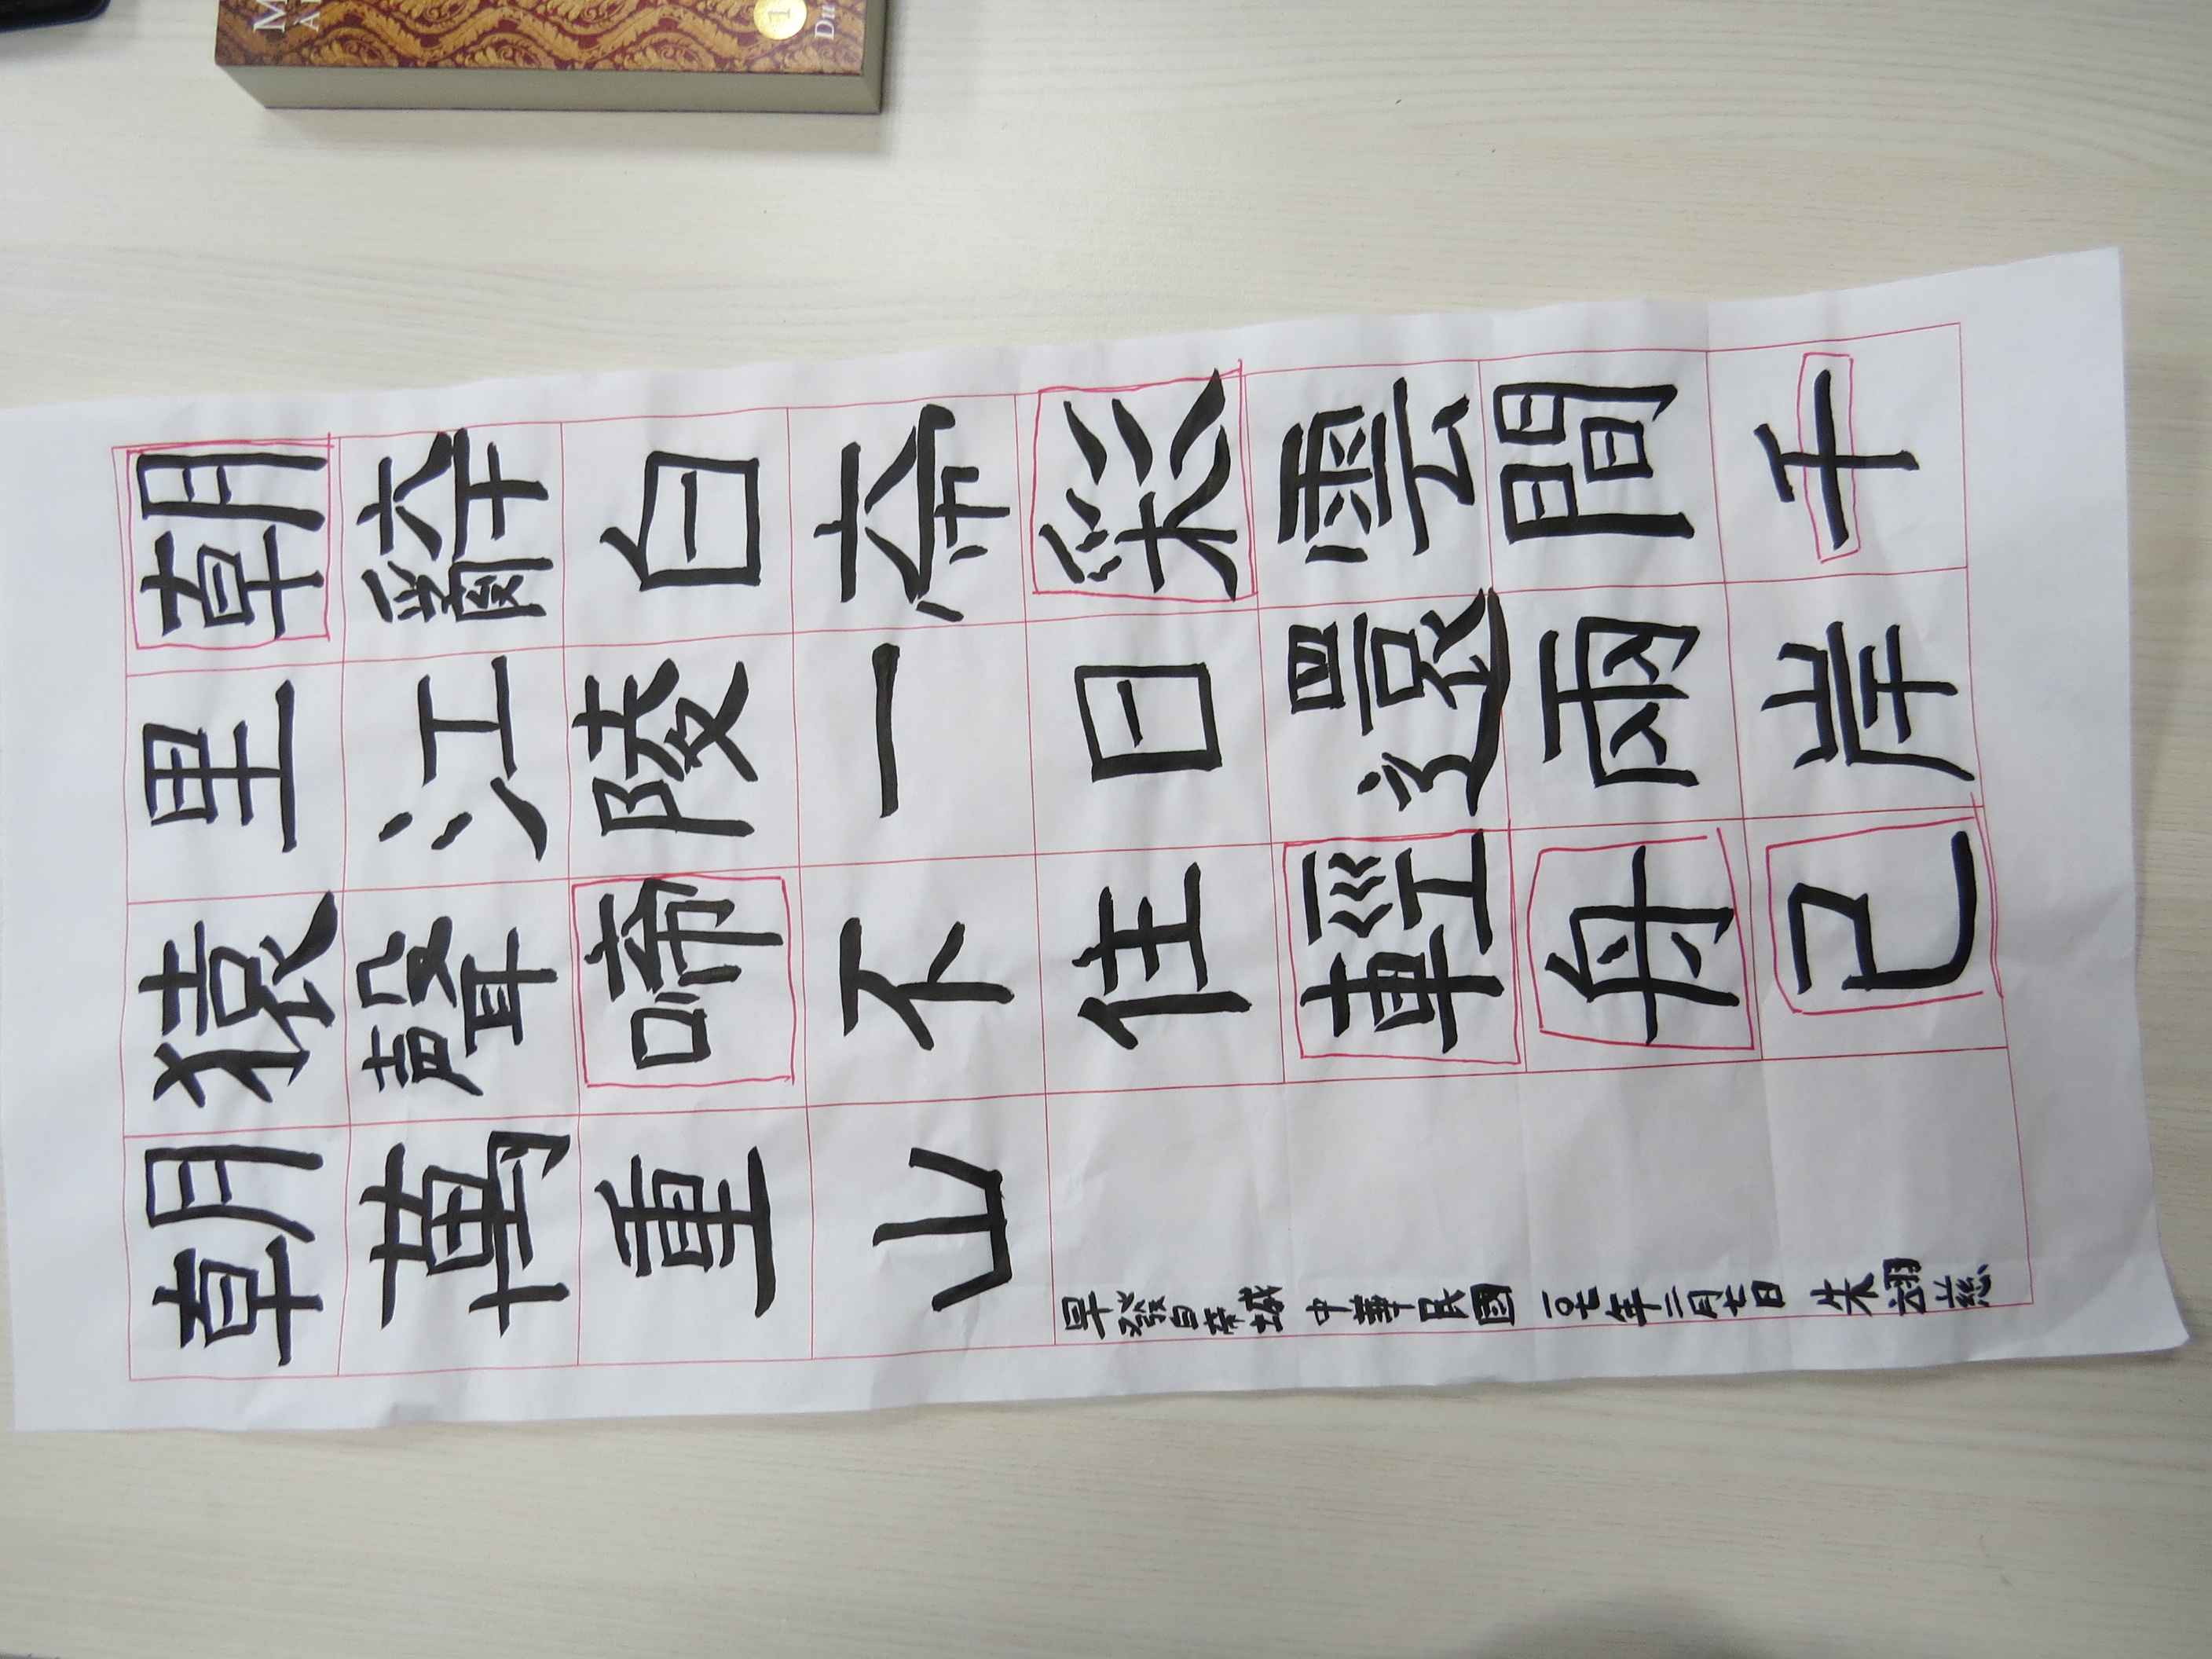 朝辭白帝彩雲間千
里江陵一日還兩岸
猿聲啼不住輕舟已
朝萬重山
早發白帝城 中華民國 一〇七年二月七日 朱翊慈